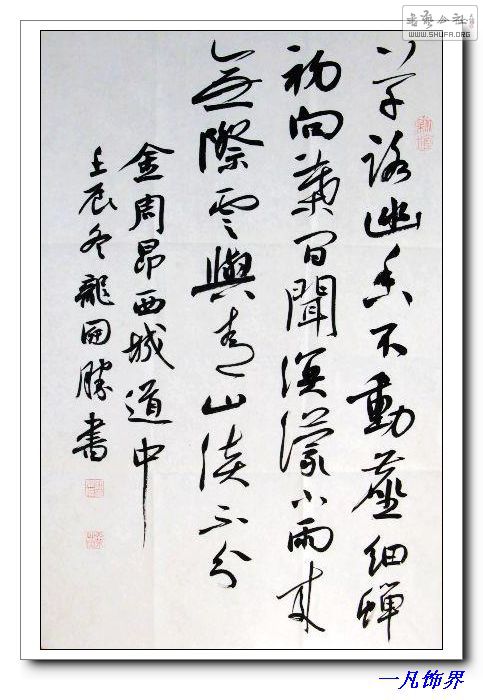 書藝公社
WWW.SHUFA.ORG
草路幽香不動塵細蟬
初向葉間聞溟濛小雨來
無際雲與青山淡不分
金周昂西城道中
壬辰冬龍國勝書
一凡饰界